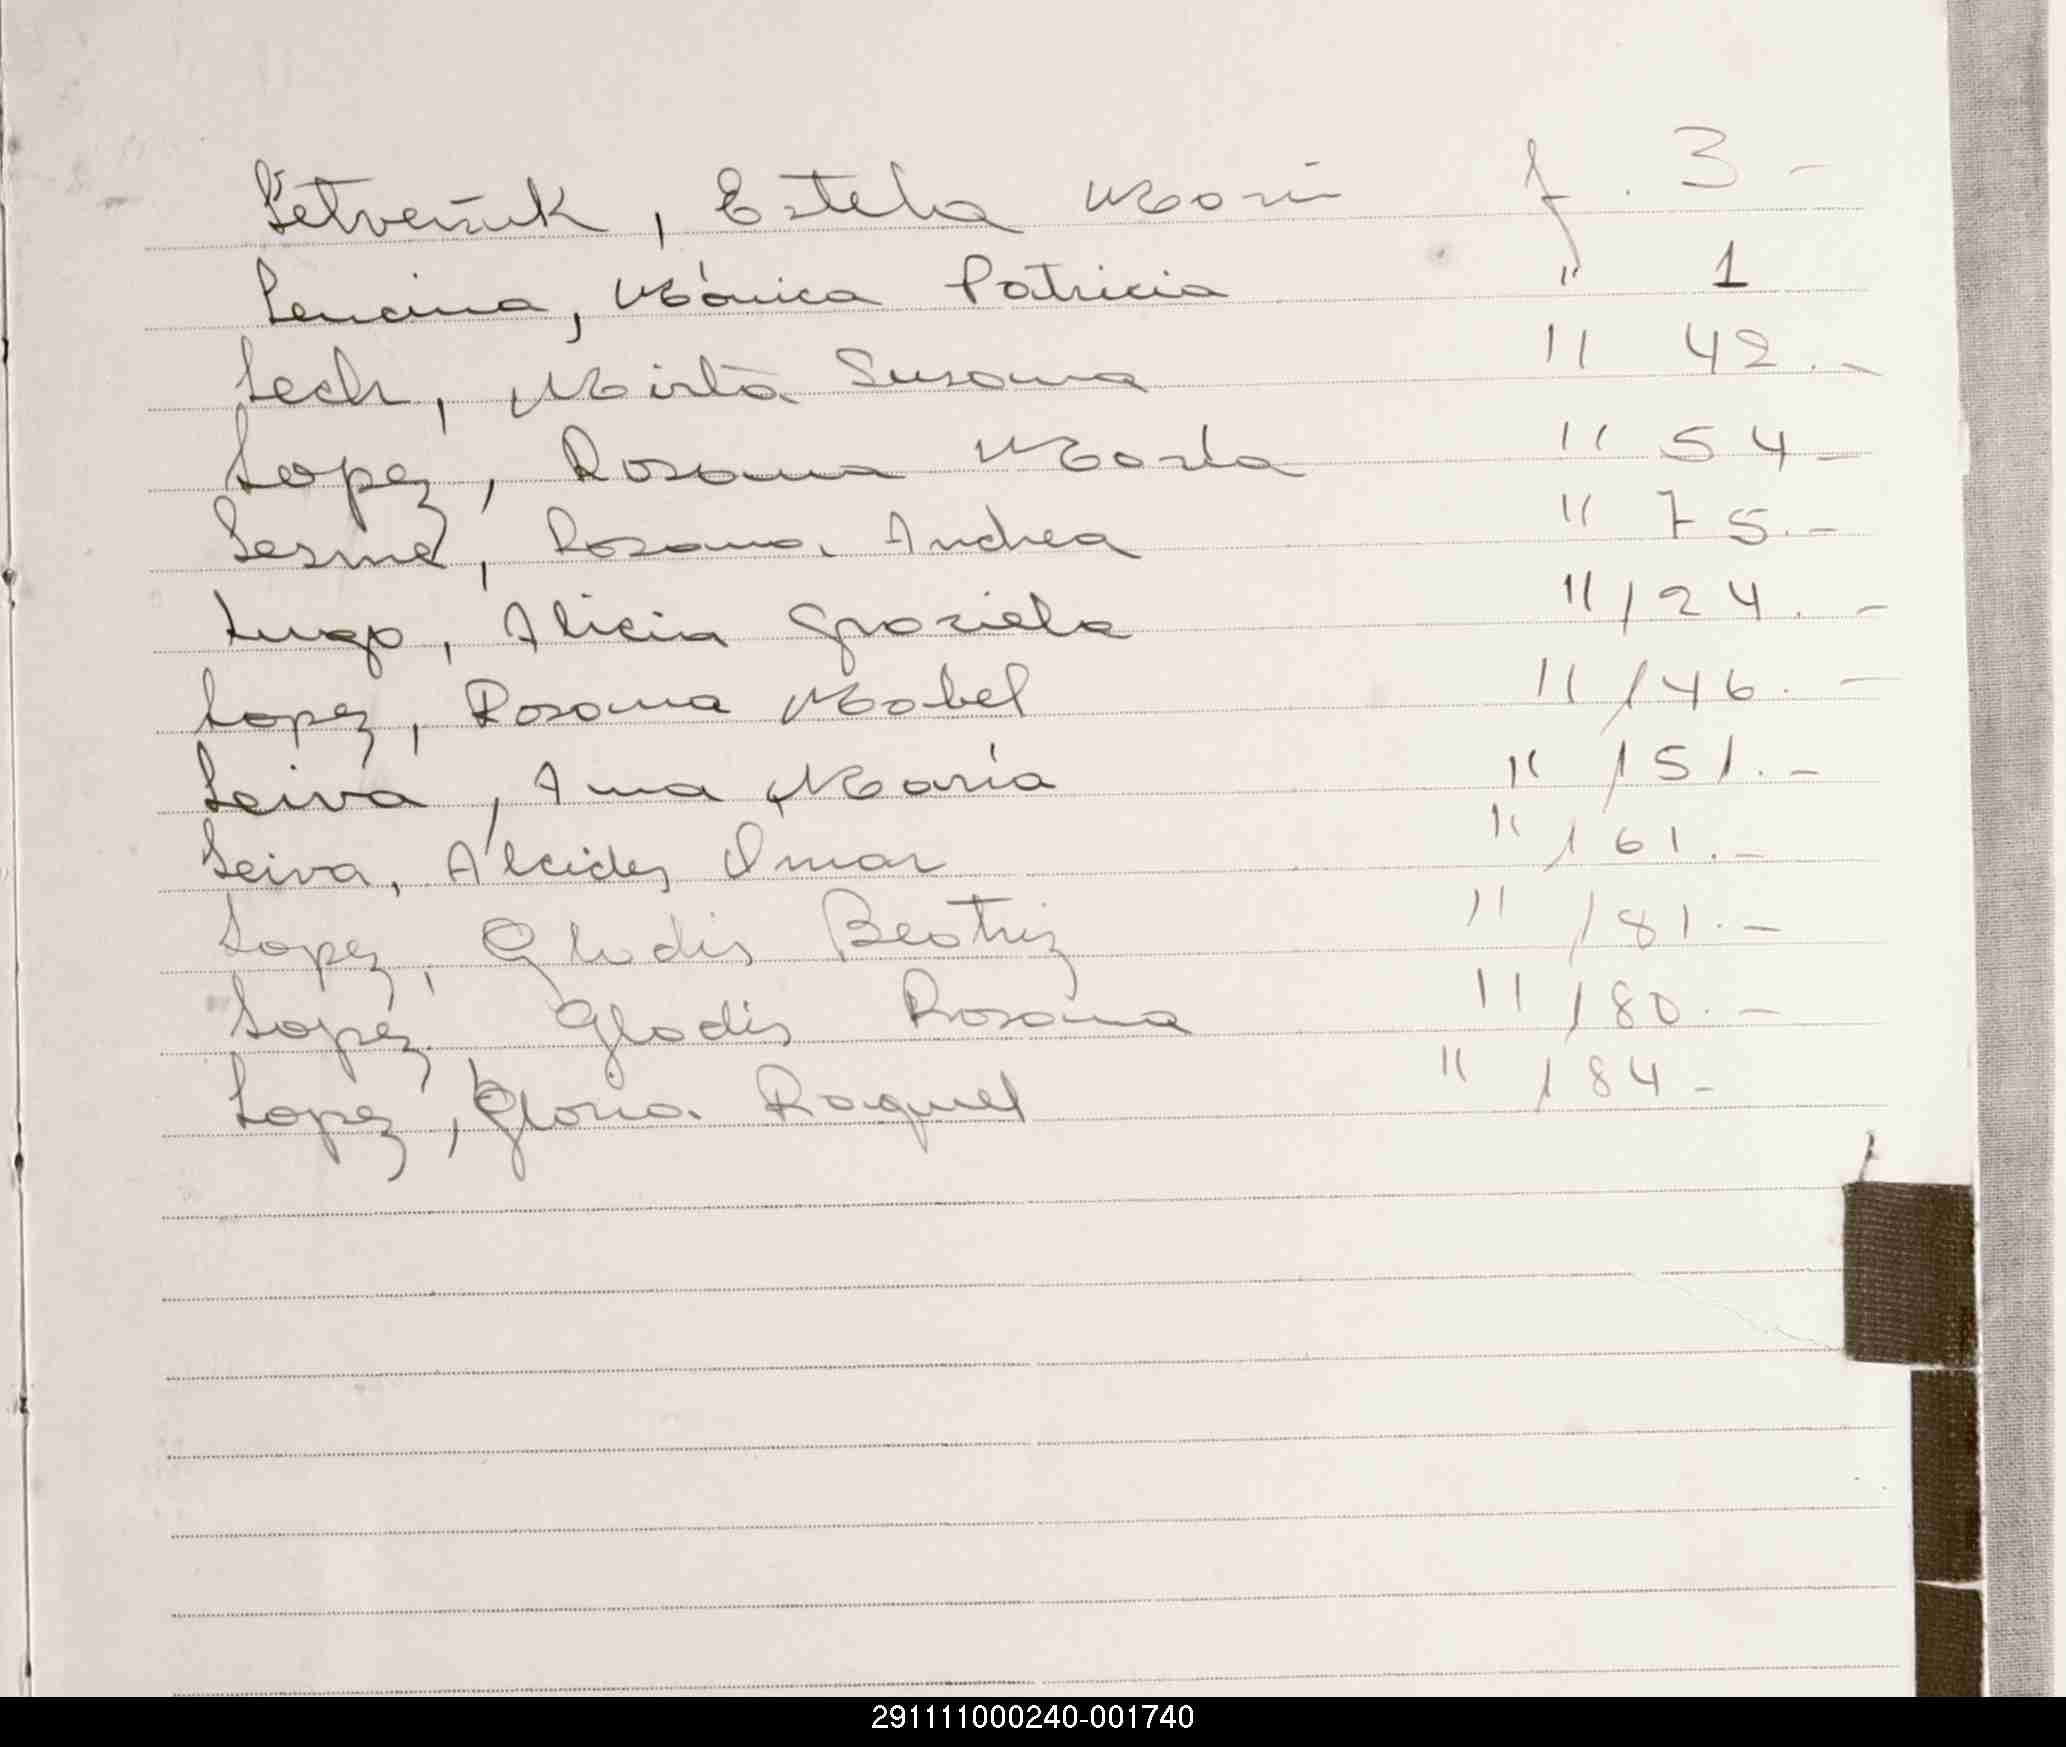 Letveiuk, Estela Mari f. 3 -
Lencina, Mónica Patricia " 1
Lech, Mirta Susana " 42.-
Lopez, Rosana Marta " 54-
Lesme, Rosana Andrea " 75.-
Lugo, Alicia Graziela " 124.-
Lopez, Rosana Mabel " 146.-
Leiva, Ana María " 151.-
Leiva, Alcides Omar " 161.-
Lopez, Gladis Beatriz " 181.-
Lopez, Gladis Rosana " 180.-
Lopez, Gloria Raquel " 184-
291111000240-001740